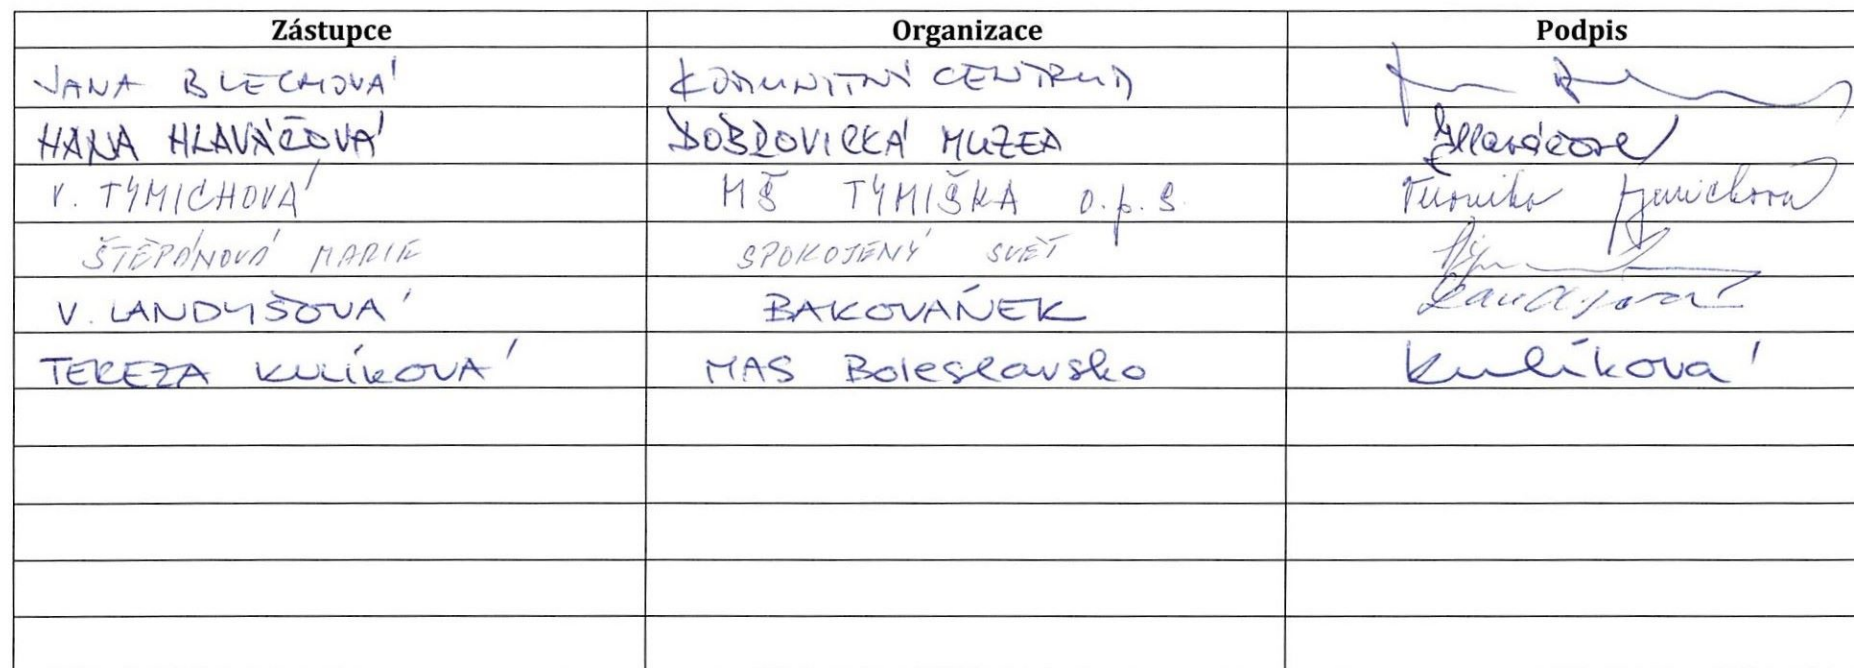 Zástupce Organizace Podpis
JANA BLECHOVÁ KOMUNITNÍ CENTRUM
HANA HLAVÁČOVÁ DOBROVICKÁ MUZEA Hlaváčová
V. TÝMICHOVÁ MŠ TÝMIŠKA o.p.s. Veronika Týmichová
ŠTĚPÁNOVÁ MARIE SPOKOJENÝ SVĚT
V. LANDYŠOVÁ BAKOVÁNEK Landyšová
TEREZA KULÍKOVÁ MAS Boleslavsko Kulíková